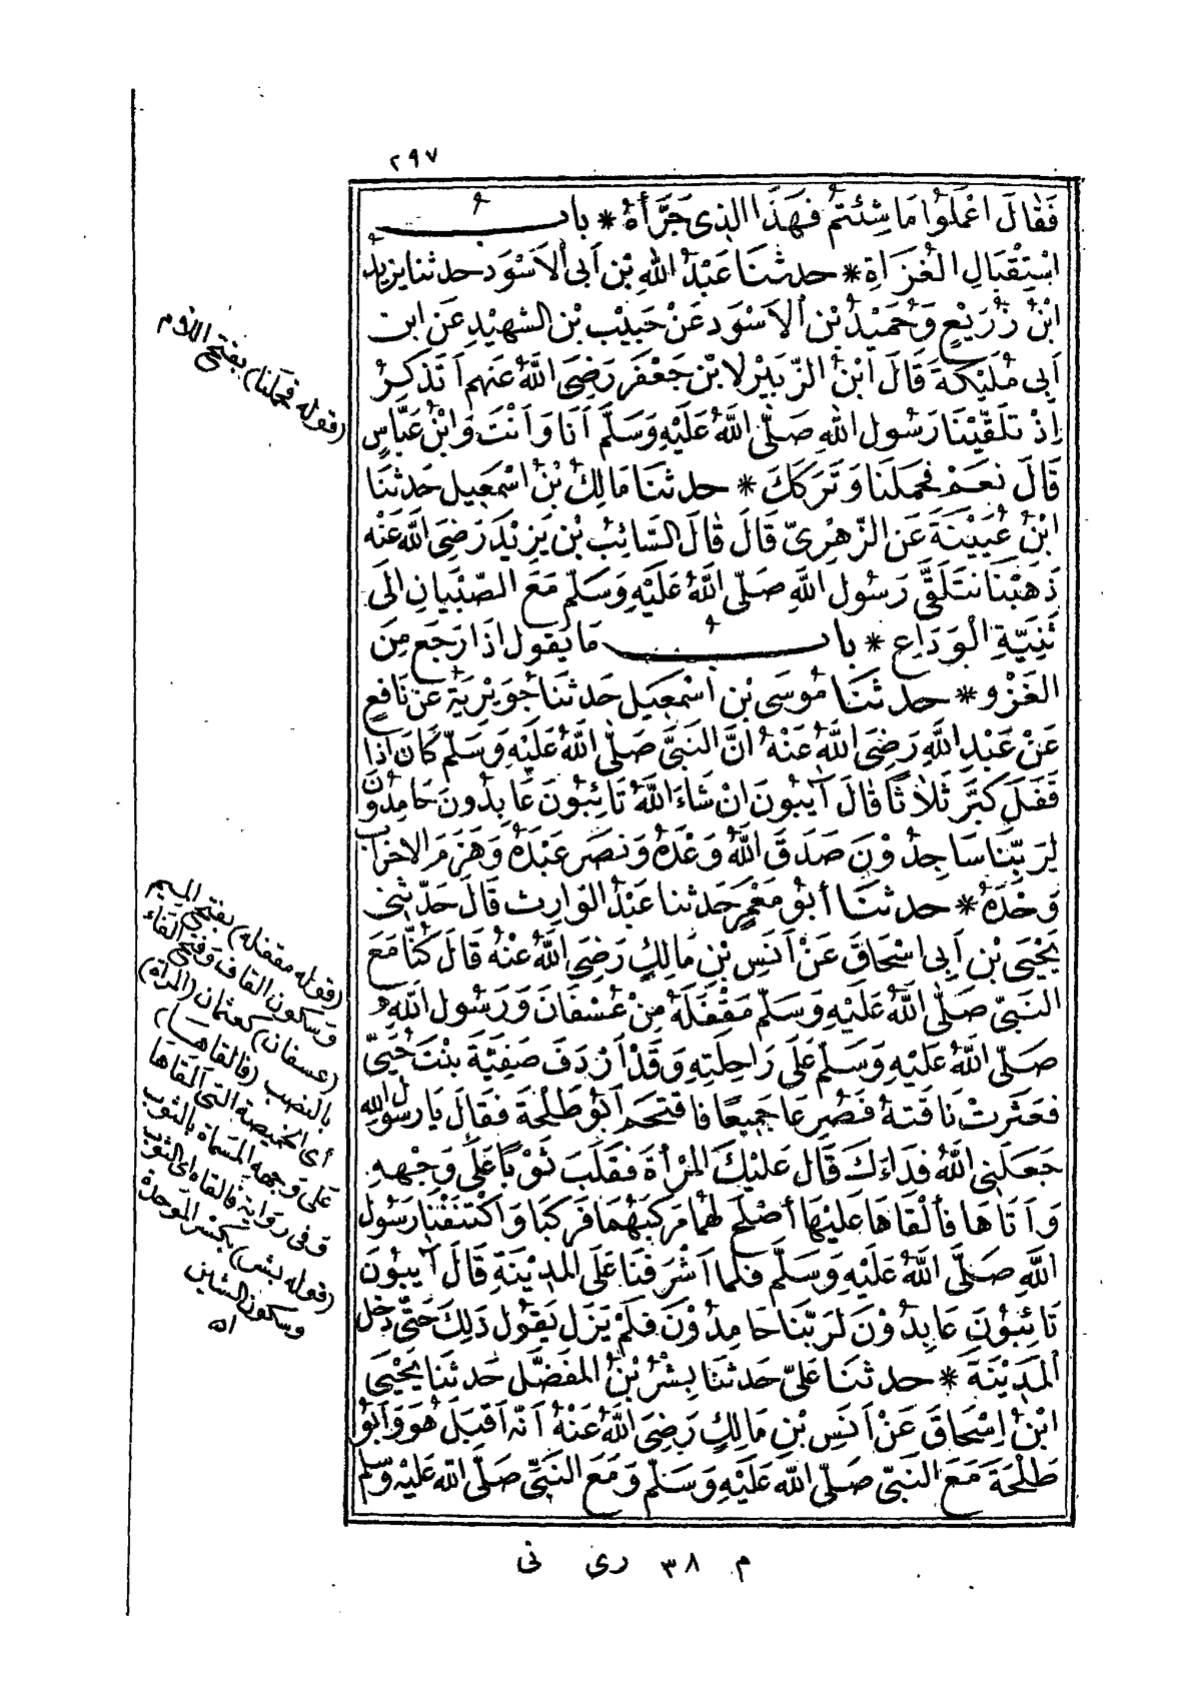 ٢٩٧
فَقَالَ اعْمَلُوا مَا شِئْتُمْ فَهَذَا الَّذِي جَرَّأَهُ * باب
اسْتِقْبَالِ الْغُزَاةِ * حدثنا عَبْدُ اللهِ بْنِ أَبِي الأَسْوَدِ حدثنا يَزِيدُ
ابْنُ زُرَيْعٍ وَحُمَيْدُ بْنِ الأَسْوَدِ عَنْ حَبِيْبِ بْنِ الشهِيْدِ عَنِ ابن
أَبِي مُلَيْكَةَ قَالَ ابْنُ الزُّبَيْرِ لابْنِ جَعْفَرٍ رَضِيَ اللَّهُ عَنْهم أَتَذْكُرُ
إِذْ تَلَقَّيْنَا رَسُولَ اللهِ صَلَّى اللَّهُ عَلَيْهِ وَسَلَّمَ أَنَا وَأَنْتَ وَابْنُ عَبَّاسٍ
قَالَ نَعَمْ فَحَمَلَنَا وَتَرَكَكَ * حدثنا مَالِكُ بْنُ اسْمَعِيلَ حَدثَنَا
ابْنُ عُيَيْنَةَ عَنِ الزُّهْرِيِّ قَالَ قَالَ السَّائِبُ بْنُ يَزِيْدَ رَضِيَ اللَّهُ عَنْه
ذَهَبْنَا نَتَلَقَّى رَسُولَ اللَّهِ صَلَّى اللَّهُ عَلَيْهِ وَسَلَّمَ مَعَ الصِّبْيَانِ إلَى
ثَنِيَّةِ الْوَدَاعِ * باب مَا يَقُولُ اذَا رَجَعَ مِنَ
الغَزْوِ * حدثنَا مُوسَى بْنِ اسْمَعِيلَ حَدثنَا جُوَيْرِيَةُ عَنْ نَافِعٍ
عَنْ عَبْدِ اللَّهِ رَضِيَ اللَّهُ عَنْهُ أَنَّ النَّبِيَّ صَلَّى اللَّهُ عَلَيْهِ وَسَلَّمَ كَانَ اذَا
قَفَلَ كَبَّرَ ثَلاَثًا قَالَ آيِبُونَ انْ شَاءَ اللَّهُ تَائِبُونَ عَابِدُونَ حَامِدُونَ
لِرَبِّنَا سَاجِدُوْنَ صَدَقَ اللَّهُ وَعْدَهُ وَنَصَرَ عَبْدَهُ وَهَزَمَ الاحْزَابَ
وَحْدَهُ * حدثنَا أَبُو مَعْمَرٍ حَدثنا عَبْدُ الوَارِثِ قَالَ حَدَّثَنِي
يَحْيَى بْنِ أَبِي اسْحَاقَ عَنْ أَنَسِ بْنِ مَالِكٍ رَضِيَ اللَّهُ عَنْهُ قَالَ كُنَّا مَعَ
النَّبِيِّ صَلَّى اللَّهُ عَلَيْهِ وَسَلَّمَ مَقْفَلَهُ مِنْ عُسْفَانَ وَرَسُولُ اللَّهِ
صَلَّى اللَّهُ عَلَيْهِ وَسَلَّمَ عَلَى رَاحِلَتِهِ وَقَدْ أَرْدَفَ صَفِيَّةَ بِنْتَ حُيَيٍّ
فَعَثَرَتْ نَاقَتُهُ فَصُرِعَا جَمِيعًا فَاقْتَحَمَ أَبُو طَلْحَةَ فَقَالَ يَا رَسُولَ الله
جَعَلَنِي اللَّهُ فِدَاءَكَ قَالَ عَلَيْكَ الْمَرْأَةَ فَقَلَبَ ثَوْبًا عَلَى وَجْهِهِ
وَأَتَاهَا فَأَلْقَاهَا عَلَيْهَا أَصْلَحَ لَهُمَا مَرْكَبَهُمَا فَرَكِبَا وَاكْتَنَفْنَا رَسُولَ
اللَّهِ صَلَّى اللَّهُ عَلَيْهِ وَسَلَّمَ فَلَمَّا أَشْرَفْنَا عَلَى الْمَدِيْنَةِ قَالَ آيِبُونَ
تَائِبُوْنَ عَابِدُوْنَ لِرَبِّنَا حَامِدُوْنَ فَلَمْ يَزَلْ يَقُولُ ذَلِكَ حَتَّى دَخَلَ
الْمَدِيْنَةَ * حدثنَا عَلِيٌّ حَدثنَا بِشْرُ بْنُ الْمُفَضَّلِ حَدثنَا يَحْيَى
ابْنُ إِسْحَاقَ عَنْ أَنَسِ بْنِ مَالِكٍ رَضِيَ اللَّهُ عَنْهُ أَنَّهُ أَقْبَلَ هُوَ وَأَبُو
طَلْحَةَ مَعَ النَّبِيِّ صَلَّى اللَّهُ عَلَيْهِ وَسَلَّمَ وَمَعَ النَّبِيِّ صَلَّى اللَّهُ عَلَيْهِ وَسَلَّمَ
(قوله فحملنا) بفتح اللام
(قوله مقفله) بفتح الميم
وسكون القاف وفتح الفاء
(عسفان) كعثمان (المرأة)
بالنصب (فألقاها)
أي الخميصة التي ألقاها
على وجهه المسماة بالثوب
وفي رواية فألقاه اى الثوب
(قوله بشر) بكسر الموحدة
وسكون الشين
اه
م ٣٨ رى نى